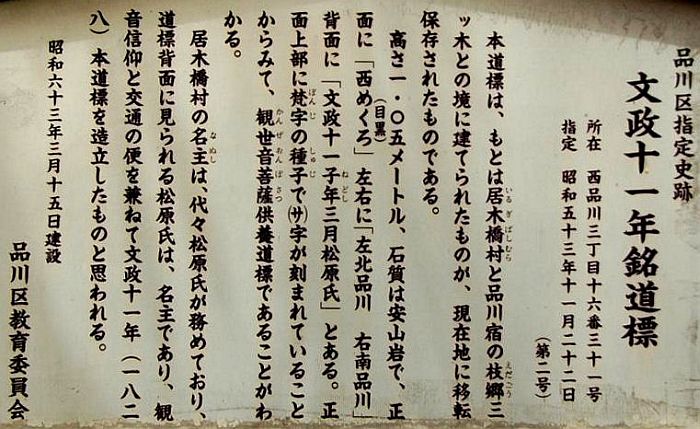 品川区指定史跡
文政十一年銘道標
所在 西品川三丁目十六番三十一号
指定 昭和五十三年十一月二十二日
(第二号)
本道標は、もとは居木橋村と品川宿の枝郷三
ッ木との境に建てられたものが、現在地に移転
保存されたものである。
高さ一・〇五メートル、石質は安山岩で、正
面に「西めくろ(目黒)左右に「左北品川 右南品川」
背面に「文政十一子年三月松原氏」とある。正
面上部に梵字の種子で(サ)字が刻まれていること
からみて、観世音菩薩供養道標であることがわ
かる。
居木橋村の名主は、代々松原氏が務めており、
道標背面に見られる松原氏は、名主であり、観
音信仰と交通の便を兼ねて文政十一年(一八二
八)本道標を造立したものと思われる。
昭和六十三年三月十五日建設
品川区教育委員会